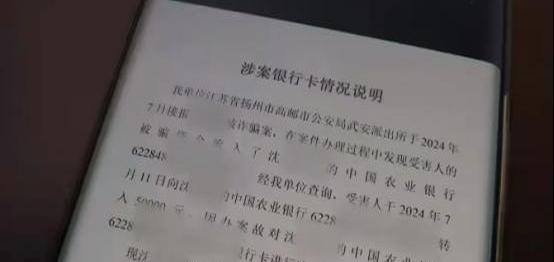 涉案银行卡情况说明
我单位江苏省扬州市高邮市公安局武安派出所于2024年
7月接报 被诈骗案，在案件办理过程中发现受害人的
被骗资金流入了沈 的中国农业银行
622848 经我单位查询，受害人于2024年7
月11日向沈 的中国农业银行6228 转
入50000元，因办案故对沈 的中国农业银
6228
现沈 行卡进行